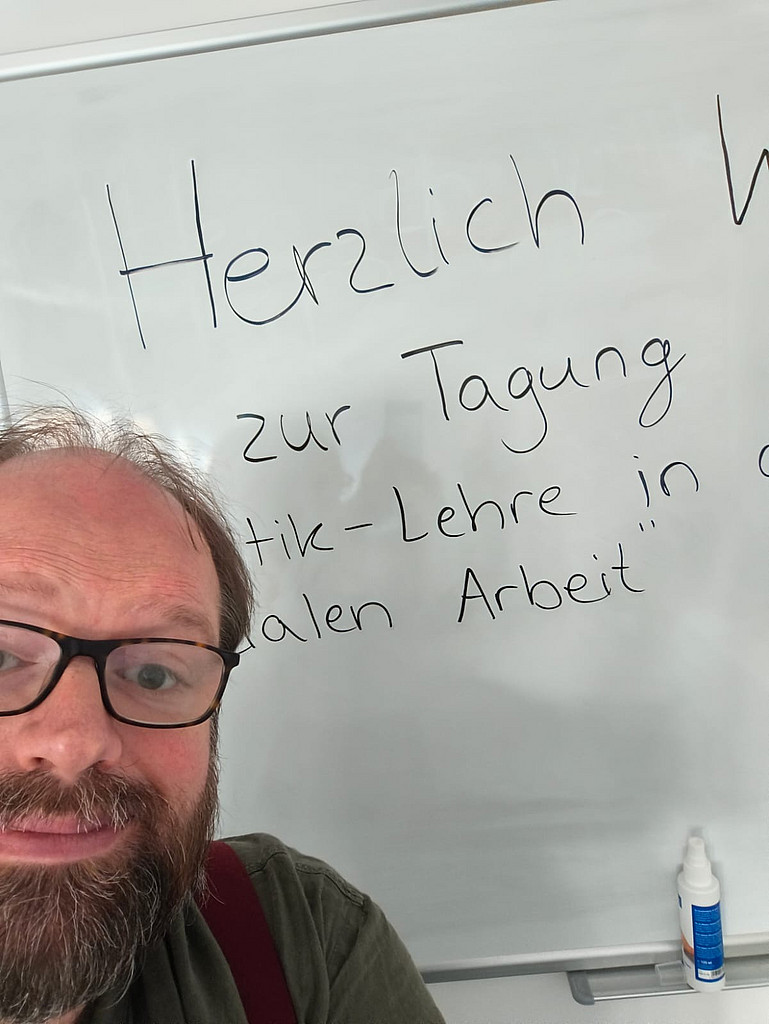 Herzlich W
zur Tagung
tik-Lehre in
alen Arbeit"